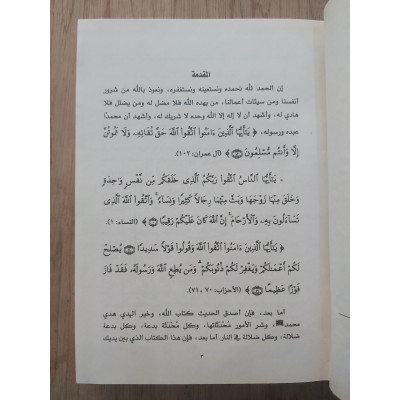 المقدمة
إن الحمد لله نحمده ونستعينه ونستغفره، ونعوذ بالله من شرور
أنفسنا ومن سيئات أعمالنا، من يهده الله فلا مضل له ومن يضلل فلا
هادي له، وأشهد أن لا إله إلا الله وحده لا شريك له، وأشهد أن محمدًا
عبده ورسوله، ﴿ يَٰٓأَيُّهَا ٱلَّذِينَ ءَامَنُوا۟ ٱتَّقُوا۟ ٱللَّهَ حَقَّ تُقَاتِهِۦ وَلَا تَمُوتُنَّ
إِلَّا وَأَنتُم مُّسْلِمُونَ ﴾ (آل عمران: ١٠٢).
﴿ يَٰٓأَيُّهَا ٱلنَّاسُ ٱتَّقُوا۟ رَبَّكُمُ ٱلَّذِى خَلَقَكُم مِّن نَّفْسٍ وَٰحِدَةٍ
وَخَلَقَ مِنْهَا زَوْجَهَا وَبَثَّ مِنْهُمَا رِجَالًا كَثِيرًا وَنِسَآءً ۚ وَٱتَّقُوا۟ ٱللَّهَ ٱلَّذِى
تَسَآءَلُونَ بِهِۦ وَٱلْأَرْحَامَ ۚ إِنَّ ٱللَّهَ كَانَ عَلَيْكُمْ رَقِيبًا ﴾ (النساء: ١).
﴿ يَٰٓأَيُّهَا ٱلَّذِينَ ءَامَنُوا۟ ٱتَّقُوا۟ ٱللَّهَ وَقُولُوا۟ قَوْلًا سَدِيدًا يُصْلِحْ
لَكُمْ أَعْمَٰلَكُمْ وَيَغْفِرْ لَكُمْ ذُنُوبَكُمْ ۗ وَمَن يُطِعِ ٱللَّهَ وَرَسُولَهُۥ فَقَدْ فَازَ
فَوْزًا عَظِيمًا ﴾ (الأحزاب: ٧٠ ، ٧١).
أما بعد، فإن أصدق الحديث كتاب الله، وخير الهدي هدي
محمد ﷺ، وشر الأمور مُحْدَثَاتُها، وكل مُحْدَثة بدعة، وكل بدعة
ضلالة، وكل ضلالة في النار. أما بعد، فإن هذا الكتاب الذي بين يديك
٣